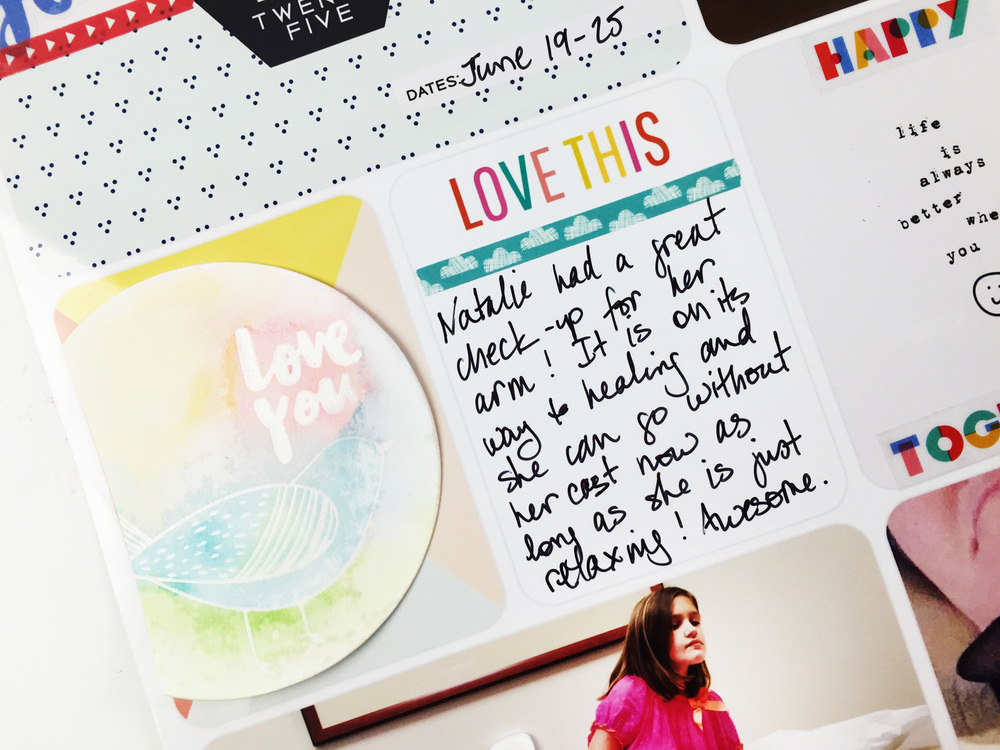 TWENTY
FIVE
DATES: June 19-25
HAPPY
LOVE THIS
life
is
always
better
you
Natalie had a great
check-up for her
arm! It is on its
way to healing and
she can go without
her cast now as
long as she is just
relaxing! Awesome.
love
you